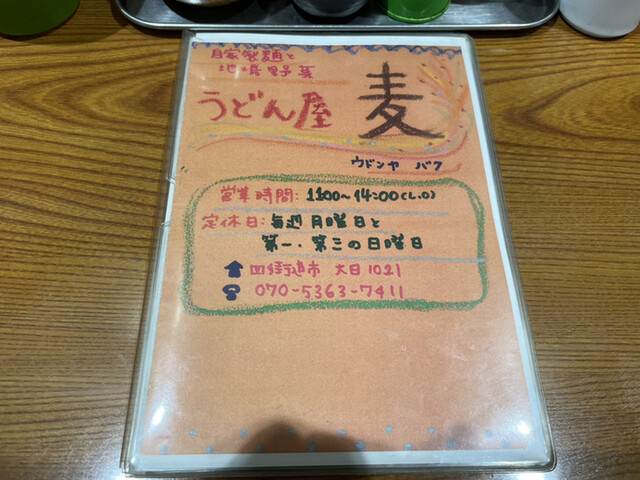 自家製麺と
地場野菜
うどん屋 麦
ウドンヤ バク
営業時間: 11:00〜14:00(L.O)
定休日: 毎週月曜日と
第一・第三の日曜日
四街道市 大日1021
070-5363-7411